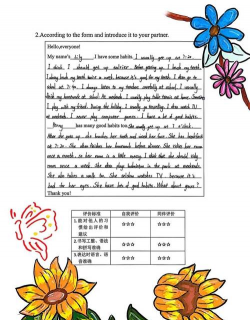 2.According to the form and introduce it to your partner.
Hello,everyone!
My name's Lily I have some habits. I usually get up at 7:20.
I think I should get up earlier. After getting up, I brush my teeth.
I always brush my teeth twice a week, because it's good for my teeth. I then go to
school at 7:40. I always listen to my teacher carefully at school. I usually
finish my homework at school. At weekends, I usually play table tennis at home. Sometimes
I play with my friend. During the holiday, I usually go travelling. I also watch TV
at weekends. I never play computer games. I have a lot of good habits.
has many good habits too. She usually get up at 7 o'clock.
After she gets up, she brushes her teeth and wash her face. She has breakfast
at 7:20. She also finishes her homework before dinner. She cleans her room
once a month, so her room is a little messy. I think that she should tidy
room once a week. She also plays badminton in the park at weekends.
She also takes a walk too. She seldom watches TV, because it's
bad for her eyes. She have lots of good habits. What about yours?
Thank you!
评价标准 自我评价 同伴评价
1.能对他人的习惯给出评价和建议 ☆☆☆ ☆☆☆
2.书写工整、语法和拼写准确 ☆☆☆ ☆☆☆
3.表达时语音、语音准确 ☆☆☆ ☆☆☆